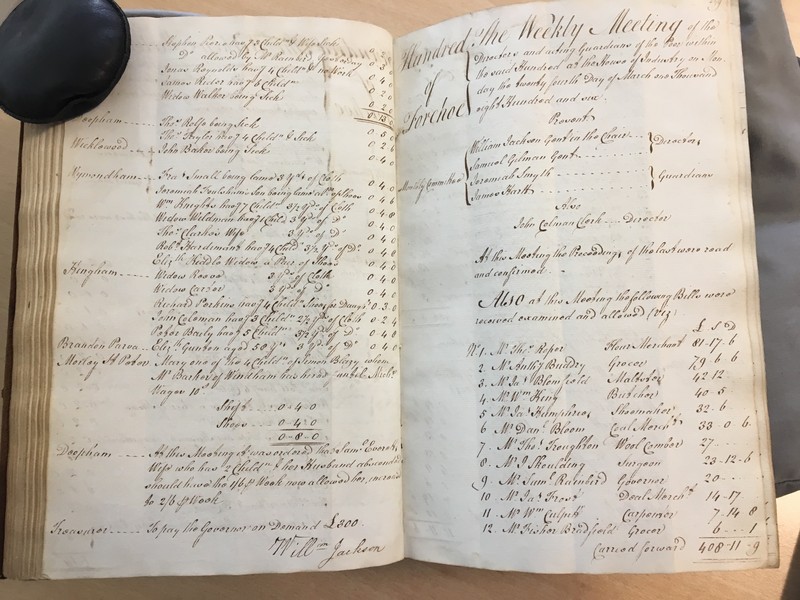 Stephen Rose hav.g 3 Child.n & Wife Sick
D.o allowed by Mr Rainbird
Jonas Reynolds hav.g 4 Child.n & no Work 0 4
James Rudor hav.g 6 Child.n 0 4 0
Widow Walker being Sick 0 2 0
Deopham Tho.s Rolfe being Sick
Tho.s Taylor hav.g 4 Child.n & Sick 0 5 0
Wicklewood John Baker being Sick 0 2 6
0 4 0
Wymondham Fra.s Small being lame 3 y.ds of Cloth 0 4 0
W.m Knights hav.g 7 Child.n 3½ y.ds of Cloth 0 4
Widow Wildman hav.g 1 Child 3 y.ds of D.o 0 4
Tho.s Clarke's Wife 3 y.ds of D.o 0 4 0
Rob.t Hardiment hav.g 4 Child.n 3½ y.ds of D.o 0 4
Eliz.th Kiddle Widow a Pair of Shoes 0 4
Hingham Widow Reeve 3 y.ds of Cloth 0 4 0
Widow Carver 3 y.ds of D.o 0 4 0
Richard Perkins hav.g 4 Child.n Shoes for Daug.r 0 3 0
John Coleman hav.g 3 Child.n 2½ y.ds of Cloth 0 2 4
Peter Baily hav.g 5 Child.n 3½ y.ds of D.o 0 4
Branden Parva Eliz.th Gunton aged 50 y.rs 3 y.ds of D.o 0 4
Morley St Peter Mary one of the 4 Child.n of Simon Blazy whom
Mr Barker of Windham has hired until Mich.s
Wages 10.s
Shift 0-4-0
Shoes 0-4-0
0-8-0
Deopham At this Meeting it was ordered that Sam.l Everett's
Wife who has 2 Child.n & her Husband absconded
should have the 1/6 p Week now allowed her, increased
to 2/6 p Week
Treasurer To pay the Governor on Demand £300
Will.m Jackson
Hundred of Forehoe
The Weekly Meeting of the
Directors and acting Guardians of the Poor within
the said Hundred at the House of Industry on Mon-
day the twenty fourth Day of March one Thousand
eight Hundred and six
Present
William Jackson Gent in the Chair
Samuel Gilman Gent Directors
Monthly Committee
Jeremiah Smyth
James Hartt Guardians
Also
John Colman Clerk Director
At this Meeting the Proceedings of the last were read
and confirmed.
Also at this Meeting the following Bills were
received examined and allowed (Viz)
£ S D
No 1. Mr Tho.s Roper Flour Merchant 81-17-6
2 Mr Anth.y Buddry Grocer 79-6-6
3 Mr Ja.s Blomfield Maltster 42-12
4 Mr W.m King Butcher 40-5
5 Mr Ja.s Humphrey Shoemaker 32-6
6 Mr Dan.l Bloom Coal Merch.t 33-0-6
7 Mr Tho.s Troughton Wool Comber 27
8 Mr J Skoulding Surgeon 23-12-6
9 Mr Sam.l Rainbird Governor 20
10 Mr Ja.s Frost Deal Merch.t 14-17
11 Mr W.m Culpitt Carpenter 7-14-8
12 Mr Fisher Bradfield Grocer 6-1
Carried forward 408-11-9